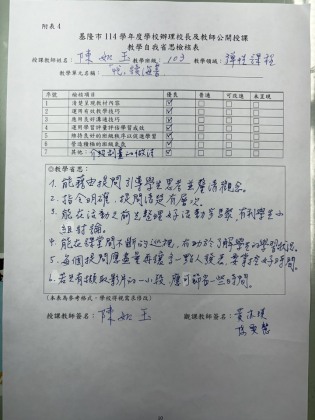 附表 4
基隆市 114 學年度學校辦理校長及教師公開授課
教學自我省思檢核表
授課教師姓名：陳如玉 教學班級：103 教學領域：彈性課程
教學單元名稱：
序號 檢核項目 優良 普通 可改進 未呈現
1 清楚呈現教材內容 ☑ □ □ □
2 運用有效教學技巧 ☑ □ □ □
3 應用良好溝通技巧 ☑ □ □ □
4 運用學習評量評估學習成效 ☑ □ □ □
5 維持良好的班級秩序以促進學習 ☑ □ □ □
6 營造積極的班級氣氛 ☑ □ □ □
7 其他： ☑ □ □ □
◎教學省思：
1. 能藉由提問引導學生思考並釐清觀念。
2. 指令明確，提問清楚有層次。
3. 能在活動之前先整理好活動
組討論。
4. 能在課堂間不斷的巡視，有助於了解學生的學習狀況。
5. 每個提問應盡量再擴 一點人 時間。
6. 若只有擷取影片的一小段，應可節省一些時間。
(本表為參考格式，學校得視需求修改)
授課教師簽名：陳如玉 觀課教師簽名：